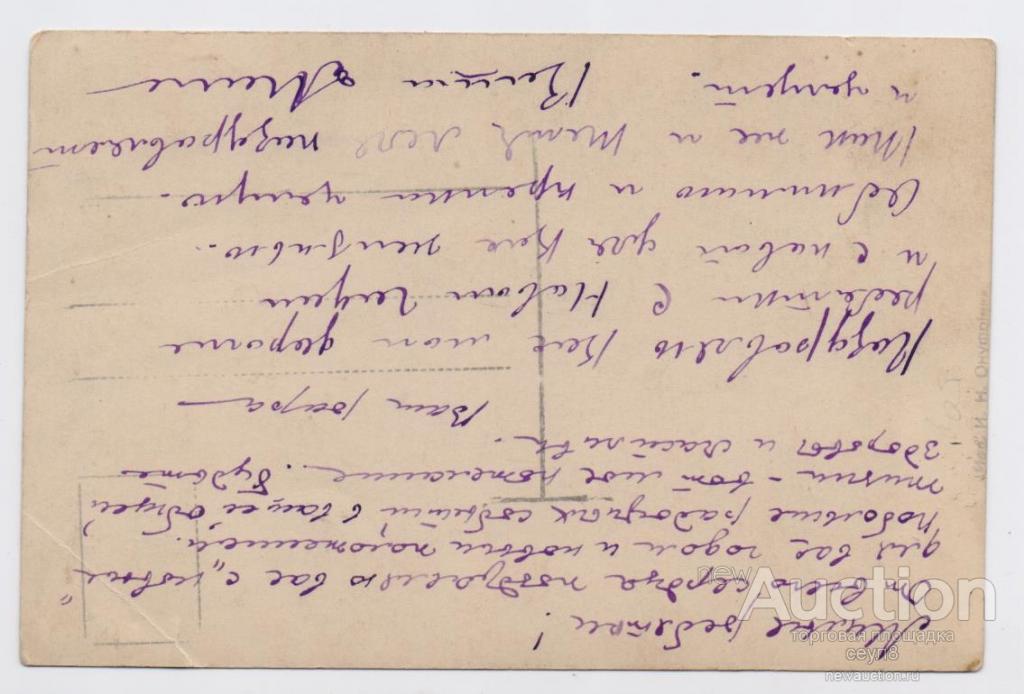 Милые ребятки!
От всего сердца поздравляю вас с „новым“
для вас годом и новым положением.
Побольше радостных событий в вашей общей
жизни – вот мое пожелание. Будьте
здоровы и счастливы.
Ваш
Поздравляю Вас мои дорогие
ребятки с Новым Годом
и с новой для Вас жизнью.
Обнимаю и крепко целую.
Так же и Леля поздравляет
и целует. Ваши
newAuction
торговая площадка
сеул8
newauction.ru